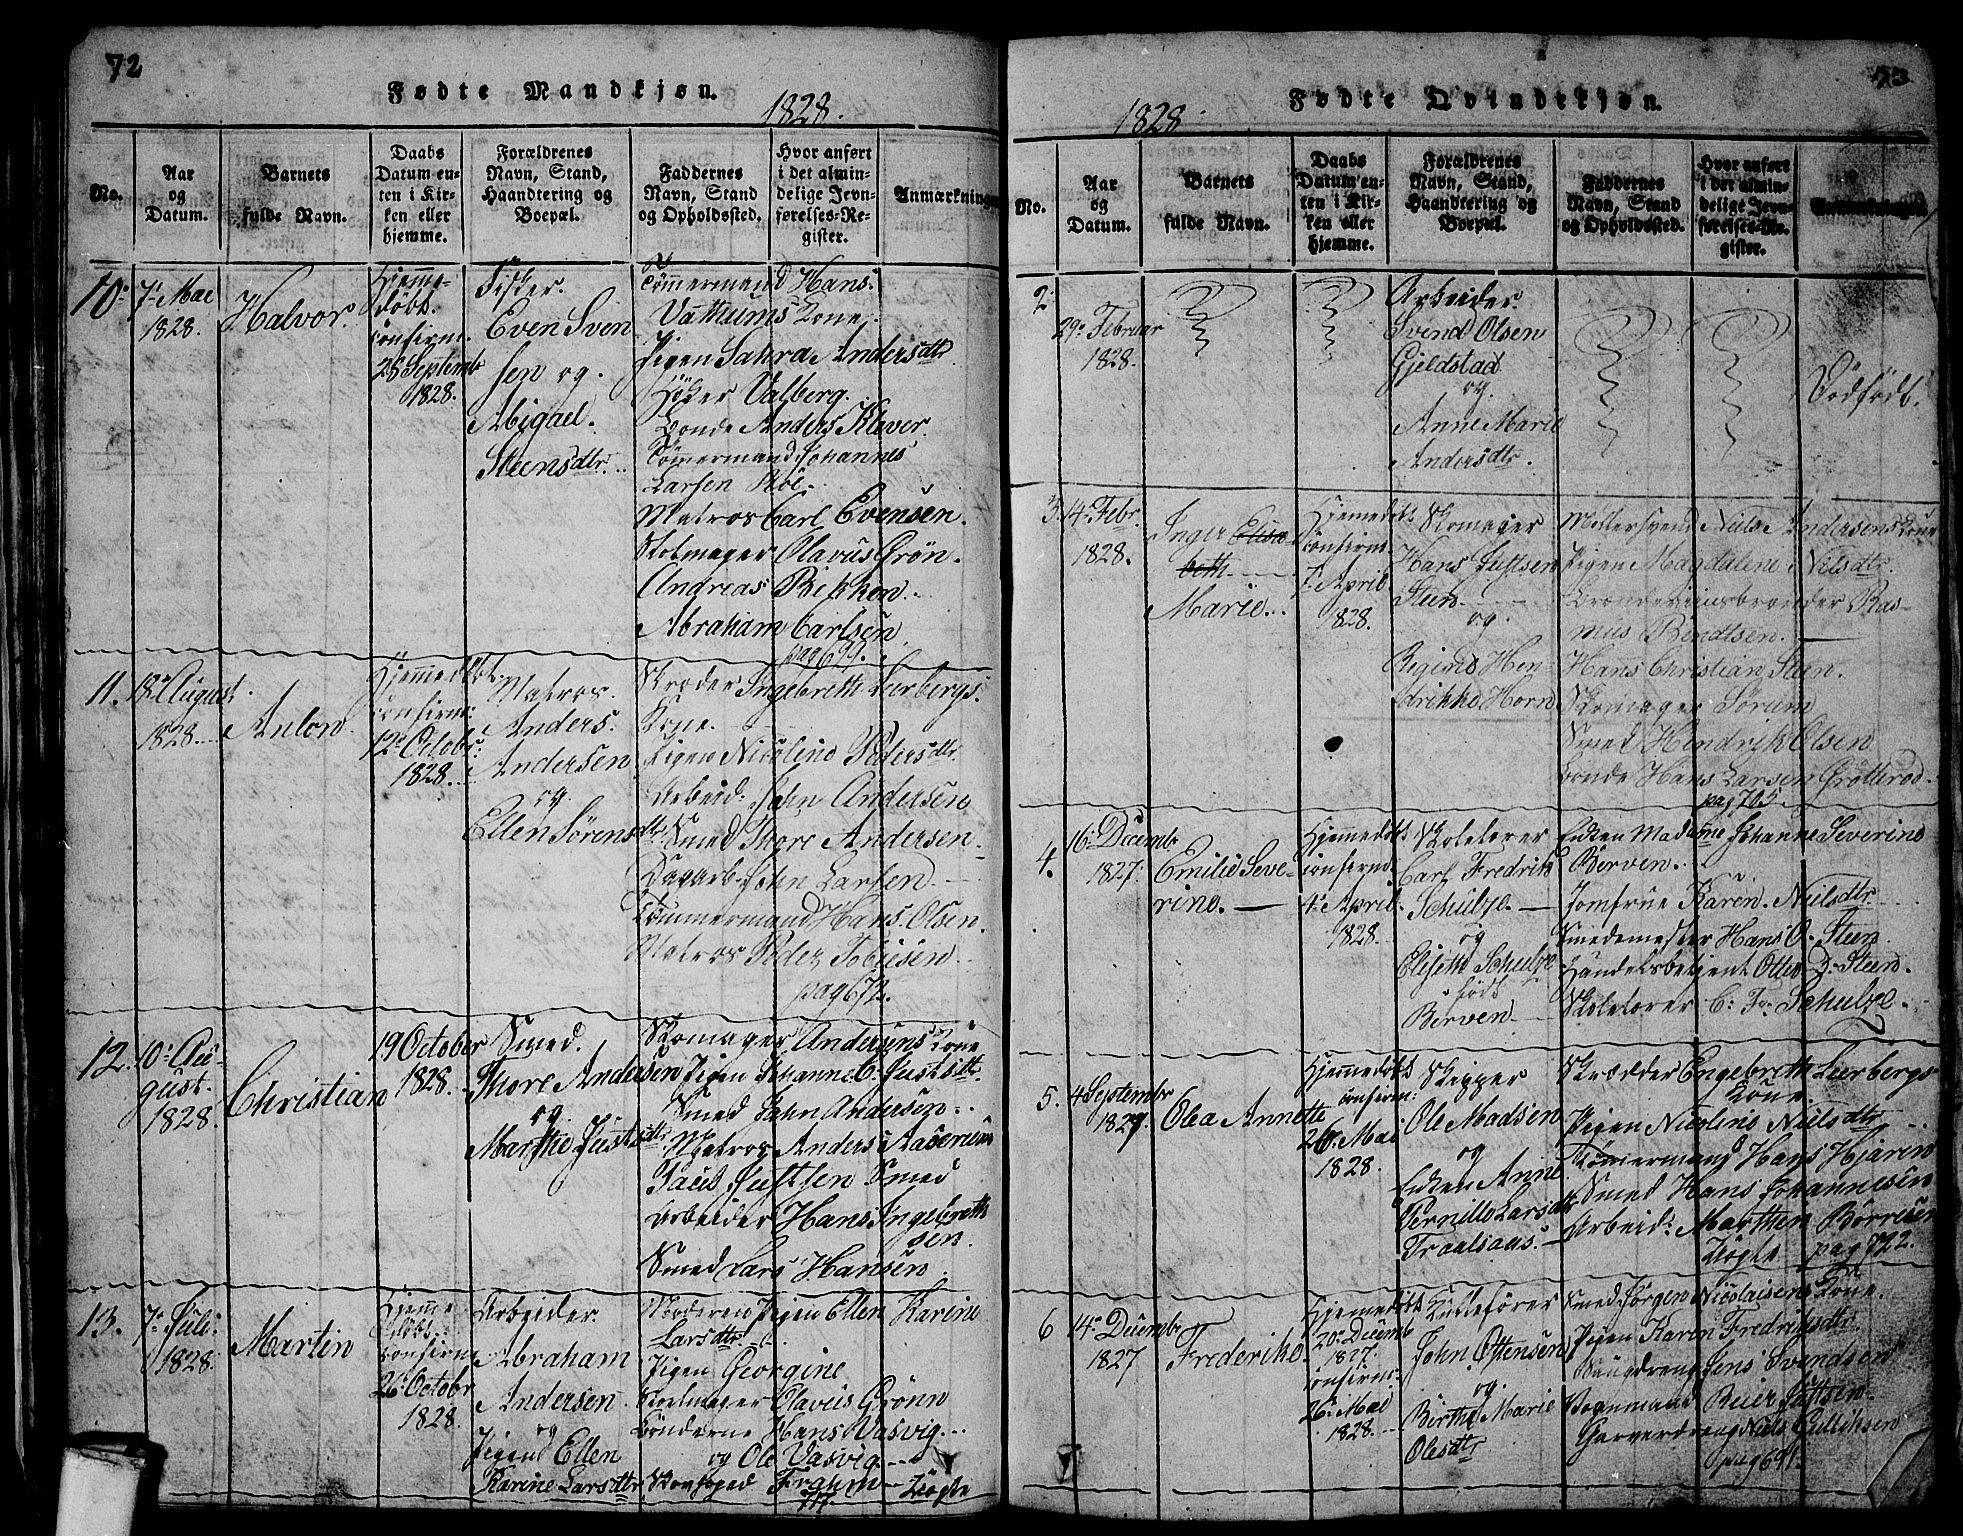 72
Fødte Mandkjøn.
1828.
No.
Aar og Datum.
Barnets fulde Navn.
Daabs Datum enten i Kirken eller hjemme.
Forældrenes Navn, Stand, Haandtering og Boepæl.
Faddernes Navn, Stand og Opholdssted.
Hvor anført i det almindelige Jevnførelses-Register.
Anmærkninger
10.
7de Mai
1828.
Halvor.
Hjemmedøbt.
confirm.
28 Septembr
1828.
Fisker.
Even Svensen og
Abigael
Steensdtr.
Tømmermand Hans
Vathums Kone.
Pigen Sahra Andersdtr
Høker Valberg.
Bonde Anders Klaver.
Tømmermand Johannes
Larsen Røe.
Matros Carl Evensen.
Stolmager Olavus Grøn
Andreas Bekken.
Abraham Carlsen
pag 699.
11.
18de August
1828
Anton
Hjemmedøbt
confirm:
12te Octobr:
1828.
Matros.
Anders
Andersen
og
Ellen Sørensdtr
Skræder Ingebreth Leerbergs
Kone.
Pigen Nicoline Pedersdtr
Arbeid: John Andersen
Smed Thore Andersen
Dagarb. John Larsen
Tømmermand Hans Olsen.
Matros Peder Tobiesen
pag 672.
12.
10de August.
1828.
Christian
19 October
1828.
Smed.
Thore Andersen
og
Marthe Justsdtr
Skomager Andersens Kone
Pigen Johanne C. Justsdtr
Smed John Andersen.
Matros Anders
Paul Justsen Smed
Arbeider Hans Ingebrethsen.
Smed Lars Hansen.
13.
7de Juli
1828.
Martin
Hjemmedøbt.
confirm
26de Octobr
1828.
Arbeider.
Abraham
Andersen
og
Pigen Ellen
Karine Larsdtr
Moderen Pigen Ellen Karine
Larsdtr
Pigen Georgine
Stolmager Olavus Grønn
Bønderne Hans Vasvig
og Ole Vasvig
73
Fødte Qvindekjøn.
1828
No.
Aar og Datum.
Barnets fulde Navn.
Daabs Datum enten i Kirken eller hjemme.
Forældrenes Navn, Stand, Haandtering og Boepæl.
Faddernes Navn, Stand og Opholdssted.
Hvor anført i det almindelige Jevnførelses-Register.
2
29de Februar
1828.
Arbeider
Svend Olsen
Gjeldstad
og
Anne Marie
Andersdtr.
Dødfødt.
3.
14de Febr.
1828.
Inger Elisabeth
Marie
Hjemedøbt
confirm.
7de April
1828.
Skomager
Hans Justsen
Steen
og
Regine Hendrikke Horn
Møllersvend Niels Andersens Kone
Pigen Magdalene Nielsdtr.
Brændeviinsbrænder Rasmus Bendtsen.
Hans Christian Steen.
Skomager Sørum
Smed Hendrik Olsen
Bonde Hans Larsen Grøtterød
pag 705.
4.
16de Decembr
1827.
Emilie Severine.
Hjemedøbt
confirm.
4de April.
1828.
Skolelærer
Carl Fredrik
Schulze.
og
Eliseth Schulze
født
Berven
Enken Madame Johanne Severine
Berven.
Jomfrue Karen Nielsdtr
Smedemester Hans O. Steen
Handelsbetjent Otter D. Steen.
Skolelærer C. Fr. Schulze.
5.
4 Septembr
1827.
Olea Annette
Hjemmedøbt
confirm:
26. Mai
1828.
Skipper
Ole Madsen
og
Enken Anne
Pernille Larsdtr
Traalsaas.
Skrædder Engebreth Leerbergs
Kone.
Pigen Nicoline Nielsdtr
Tømermand Hans Hjaren
Smed Hans Johannesen
Arbeid: Marthen Børresen
Løgte pag 722.
6
14de Decembr
1827
Frederike.
Hjemedøbt
20de Decemb
1827.
confirm.
26de Mai
1828.
John Ottensen
og
Birthe Marie
Olesdtr
Smed Jørgen Nicolaisens Kone.
Pigen Karen Fredriksdtr.
Jens Svendsen
Vognmand Beier Justsen
Garverdreng Niels Gulliksen
pag 691.